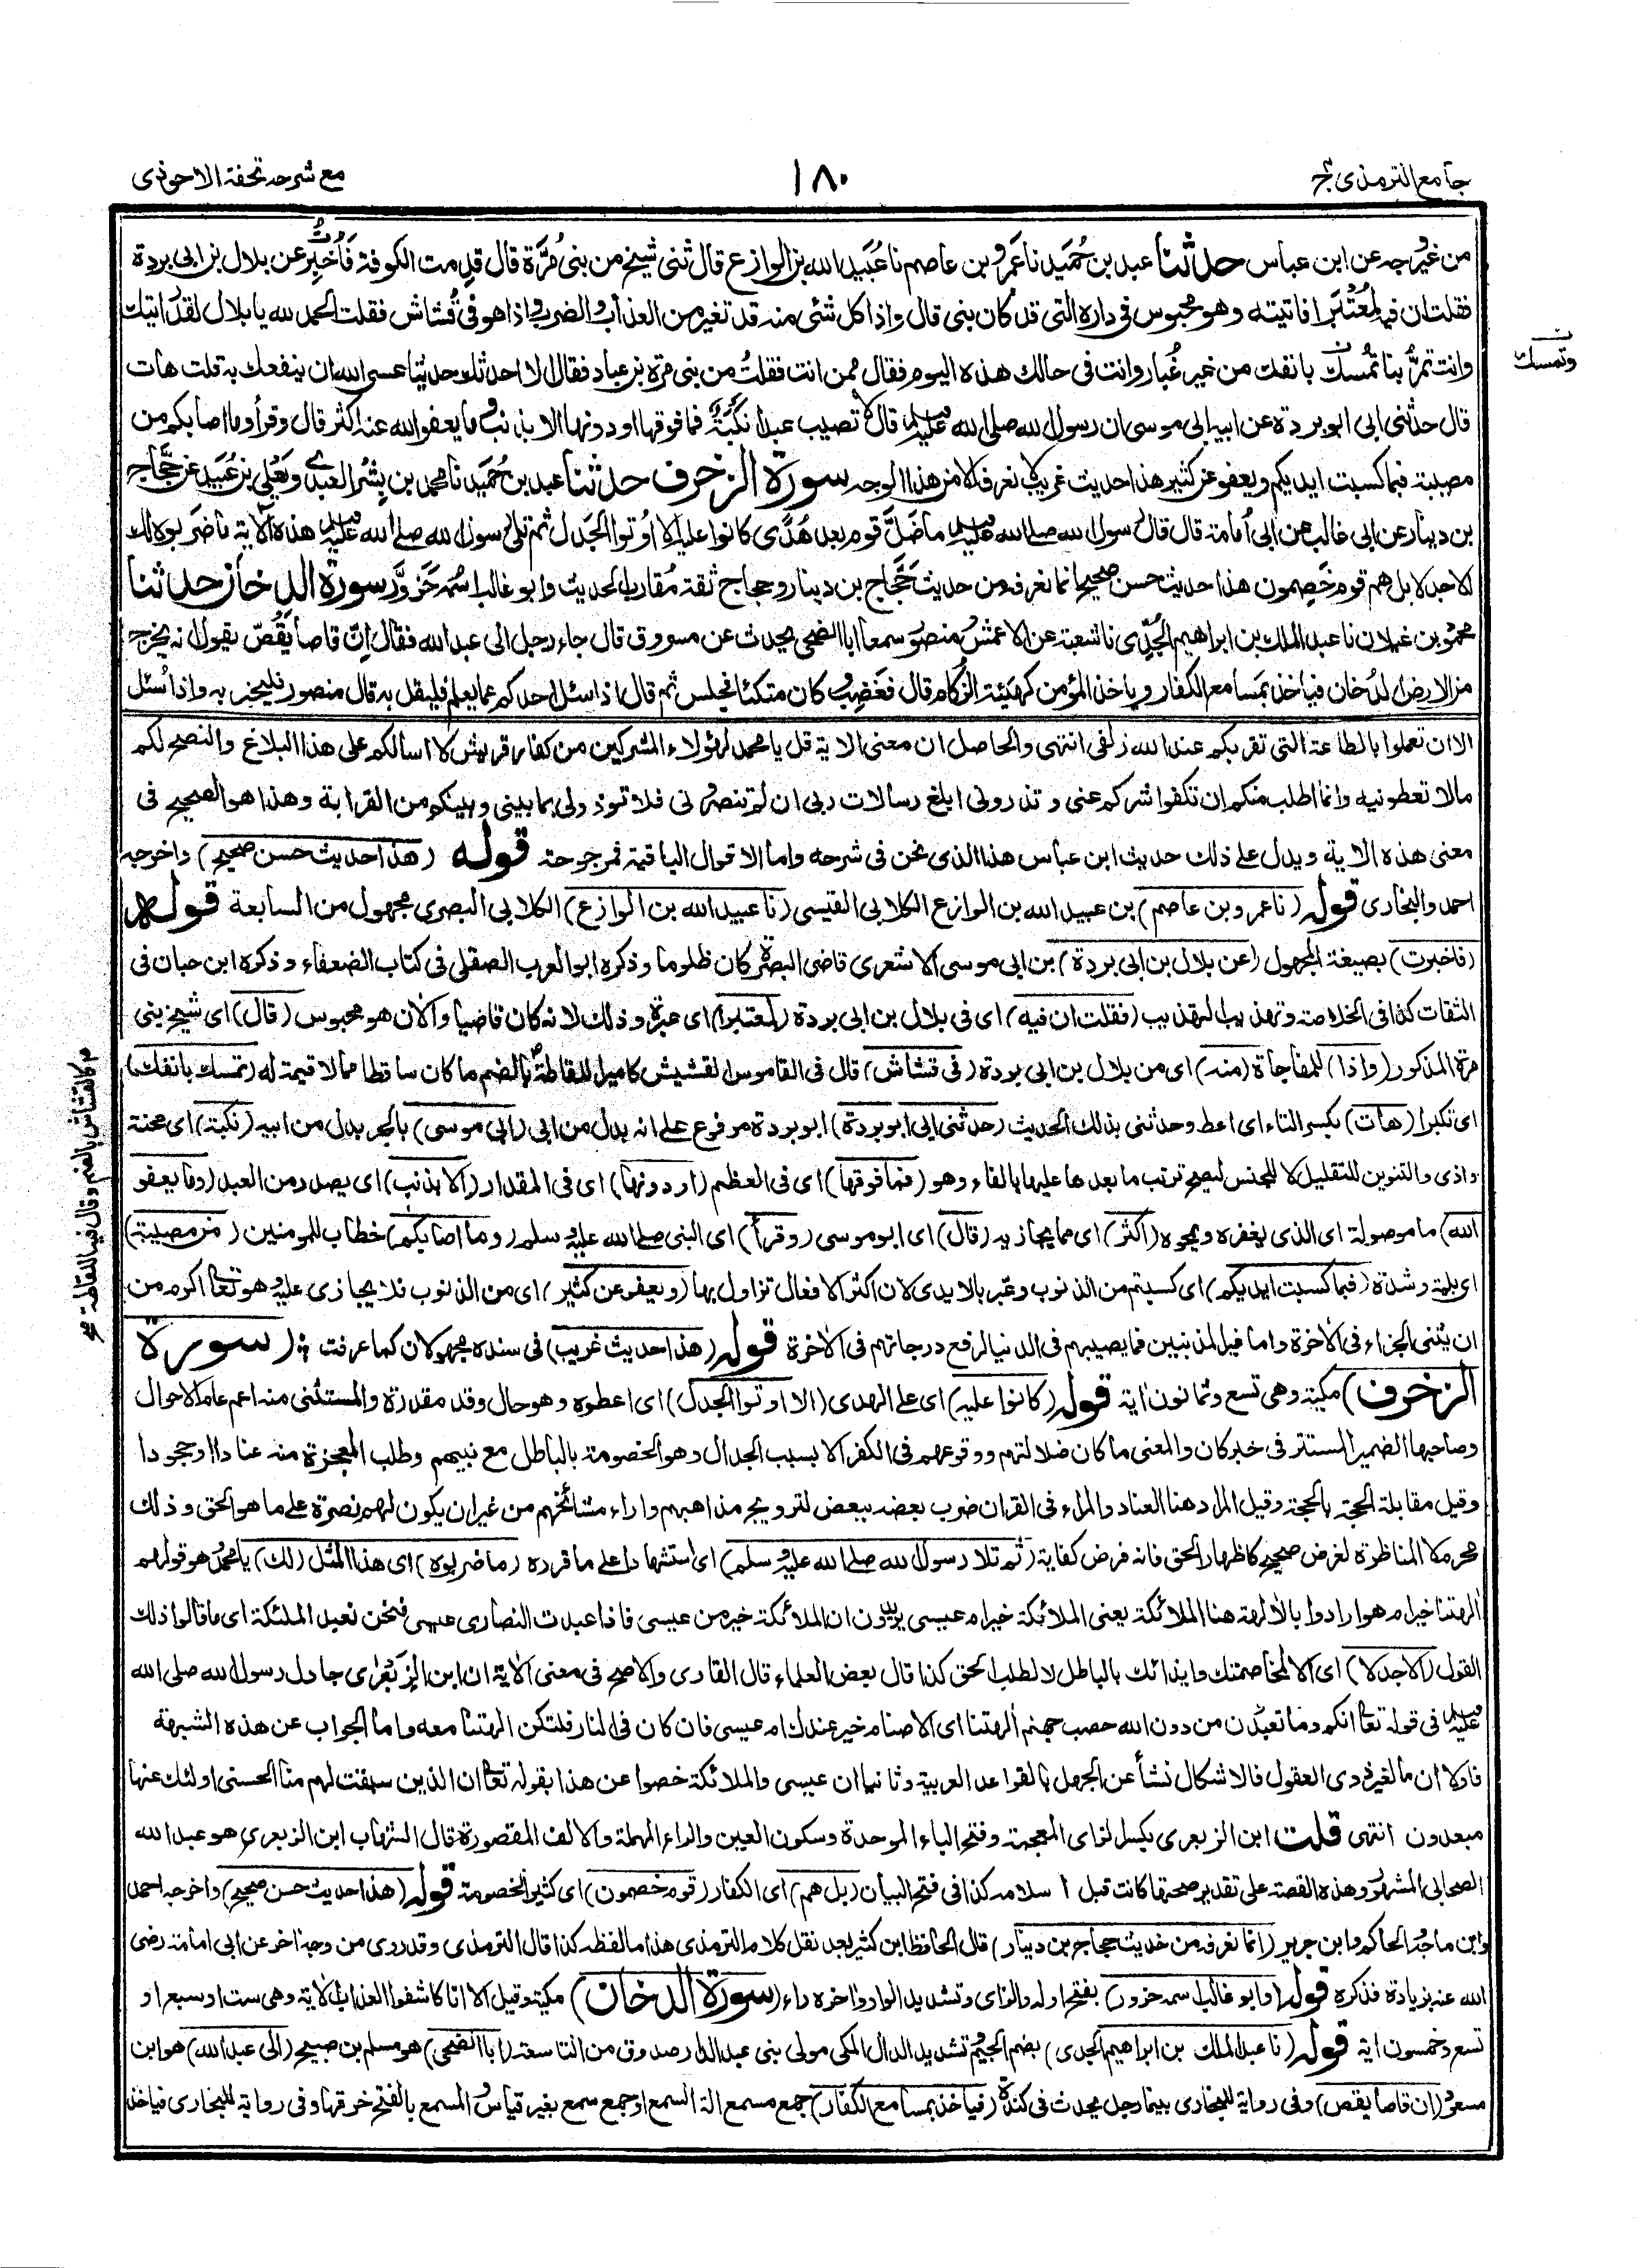 جامع الترمذى ج ٤
١٨٠
مع شرحه تحفة الاحوذى
من غير وجه عن ابن عباس حدثنا عبد بن حُمَيد نا عَمرو بن عاصم نا عُبَيد الله بن الوازع قال ثنى شيخ من بنى مُرَّة قال قدِمت الكوفة فَأُخبِرتُ عن بلال بن ابى بردة
فقلت ان فيه لمُعْتَبَرا فاتيته وهو محبوس فى داره التى قد كان بنى قال واذا كل شئى منه قد تغير من العذاب والضرب واذا هو فى قُشاش فقلت الحمد لله يا بلال لقد رايتك
وانت تمرُّ بنا تُمسك بانفك من غير غُبار وانت فى حالك هذه اليوم فقال ممن انت فقلتُ من بنى مرة بن عباد فقال الا احدثك حديثا عسى الله ان ينفعك به قلت هات
وتمسك ن
قال حدثنى ابى ابو بردة عن ابيه ابى موسى ان رسول الله صلى الله عليه وسلم قال لا تصيب عبدا نَكْبَةٌ فما فوقها او دونها الا بذنب وما يعفو الله عنه اكثر قال وقرأ وما اصابكم من
مصيبة فبما كسبت ايديكم ويعفو عن كثير هذا حديث غريب لا نعرفه الا من هذا الوجه سورة الزخرف حدثنا عبد بن حُمَيد نا محمد بن بِشْر العبدى ويَعْلى بن عُبَيد عن حَجَّاج
بن دينار عن ابى غالب عن ابى اُمامة قال قال رسول الله صلى الله عليه وسلم ما ضَلَّ قوم بعد هُدًى كانوا عليه الا اُوتوا الجَدَل ثم تلى رسول الله صلى الله عليه وسلم هذه الآية ما ضَرَبوه لك
الا جدلا بل هم قوم خَصِمون هذا حديث حسن صحيح انما نعرفه من حديث حَجَّاج بن دينار وحجاج ثقة مُقارب الحديث وابو غالب اسمه حَزَوَّر سورة الدخان حدثنا
محمود بن غيلان نا عبد الملك بن ابراهيم الجُدِّى نا شعبة عن الاعمش ومنصور سمعا ابا الضحى يحدث عن مسروق قال جاء رجل الى عبد الله فقال اِنّ قاصا يَقُصّ يقول انه يخرج
من الارض الدُخان فياخذ بمَسامع الكفار وياخذ المؤمن كهَيْئة الزُكام قال فغَضِب وكان متكئا فجلس ثم قال اذا سئل احدكم عما يعلم فليقل به قال منصور فليخبر به واذا سُئل
الا ان تعملوا بالطاعة التى تقربكم عند الله زلفى انتهى والحاصل ان معنى الاية قل يا محمد لهؤلاء المشركين من كفار قريش لا اسالكم على هذا البلاغ والنصح لكم
مالا تعطونيه وانما اطلب منكم ان تكفوا شركم عنى وتذرونى ابلغ رسالات ربى ان لم تنصرونى فلا توذونى بما بينى وبينكم من القرابة وهذا هو الصحيح فى
معنى هذه الاية ويدل على ذلك حديث ابن عباس هذا الذى نحن فى شرحه واما الاقوال الباقية فمرجوحة قوله (هذا حديث حسن صحيح) واخرجه
احمد والبخارى قوله (نا عمرو بن عاصم) بن عبيد الله بن الوازع الكلابى القيسى (نا عبيد الله بن الوازع) الكلابى البصرى مجهول من السابعة قوله
(فاخبرت) بصيغة المجهول (عن بلال بن ابى بردة) بن ابى موسى الاشعرى قاضى البصرة كان ظلوما وذكره ابو العرب الصقلى فى كتاب الضعفاء وذكره ابن حبان فى
الثقات كذا فى الخلاصة وتهذيب التهذيب (فقلت ان فيه) اى فى بلال بن ابى بردة (لمعتبرا) اى عبرة وذلك لانه كان قاضيا والان هو محبوس (قال) اى شيخ بنى
مرة المذكور (واذا) للمفاجأة (منه) اى من بلال بن ابى بردة (فى قشاش) قال فى القاموس القشيش كامير اللقاطة بالضم ما كان ساقطا مما لا قيمة له (تمسك بانفك)
م كالقشاش بالضم وقال فيه اللقاطة صح
اى تكبرا (هات) بكسر التاء اى اعط وحدثنى بذلك الحديث (حدثنى ابى ابو بردة) ابو بردة مرفوع على انه بدل من ابى (ابى موسى) بالجر بدل من ابيه (نكبة) اى محنة
واذى والتنوين للتقليل لا للجنس ليصح ترتب ما بعدها عليها بالفاء وهو (فما فوقها) اى فى العظم (او دونها) اى فى المقدار (الا بذنب) اى يصدر من العبد (وما يعفو
الله) ما موصولة اى الذى يغفره ويمحوه (اكثر) اى مما يجازيه (قال) اى ابو موسى (وقرأ) اى النبى صلى الله عليه وسلم (وما اصابكم) خطاب للمومنين (من مصيبة)
اى بلية وشدة (فبما كسبت ايديكم) اى كسبتم من الذنوب وعبر بالايدى لان اكثر الافعال تزاول بها (ويعفو عن كثير) اى من الذنوب فلا يجازى عليه وهو تعالى اكرم من
ان يثنى الجزاء فى الاخرة واما غير المذنبين فما يصيبهم فى الدنيا لرفع درجاتهم فى الاخرة قوله (هذا حديث غريب) فى سنده مجهولان كما عرفت (سورة
الزخرف) مكية وهى تسع وثمانون اية قوله (كانوا عليه) اى على الهدى (الا اوتوا الجدل) اى اعطوه وهو حال وقد مقدرة والمستثنى منه اعم عام الاحوال
وصاحبها الضمير المستتر فى خبر كان والمعنى ما كان ضلالتهم ووقوعهم فى الكفر الا بسبب الجدال وهو الخصومة بالباطل مع نبيهم وطلب المعجزة منه عنادا او جحودا
وقيل مقابلة الحجة بالحجة وقيل المراد هنا العناد والمراء فى القران ضرب بعضه ببعض لترويج مذاهبهم واراء مشائخهم من غير ان يكون لهم نصرة على ما هو الحق وذلك
محرم لا المناظرة لغرض صحيح كاظهار الحق فانه فرض كفاية (ثم تلا رسول الله صلى الله عليه وسلم) اى استشهادا على ما قرره (ما ضربوه) اى هذا المثل (لك) يا محمد وهو قولهم
ءالهتنا خير ام هو ارادوا بالالهة هنا الملائكة يعنى الملائكة خير ام عيسى يريدون ان الملائكة خير من عيسى فاذا عبدت النصارى عيسى فنحن نعبد الملئكة اى ما قالوا ذلك
القول (الا جدلا) اى الا لمخاصمتك وايذائك بالباطل لا لطلب الحق كذا قال بعض العلماء قال القارى والاصح فى معنى الاية ان ابن الزِبَعْرٰى جادل رسول الله صلى الله
عليه وسلم فى قوله تعالى انكم وما تعبدون من دون الله حصب جهنم ءالهتنا اى الاصنام خير عندك ام عيسى فان كان فى النار فلتكن الهتنا معه واما الجواب عن هذه الشبهة
فاولا ان ما لغير ذوى العقول فالاشكال نشأ عن الجهل بالقواعد العربية وثانيا ان عيسى والملائكة خصوا عن هذا بقوله تعالى ان الذين سبقت لهم منا الحسنى اولئك عنها
مبعدون انتهى قلت ابن الزبعرى بكسر الزاى المعجمة وفتح الباء الموحدة وسكون العين والراء المهملة والالف المقصورة قال الشهاب ابن الزبعرى هو عبد الله
الصحابى المشهور وهذه القصة على تقدير صحتها كانت قبل اسلامه كذا فى فتح البيان (بل هم) اى الكفار (قوم خصمون) اى كثير الخصومة قوله (هذا حديث حسن صحيح) واخرجه احمد
وابن ماجه والحاكم وابن جرير (انما نعرفه من حديث حجاج بن دينار) قال الحافظ ابن كثير بعد نقل كلام الترمذى هذا ما لفظه كذا قال الترمذى وقد روى من وجه اخر عن ابى امامة رضى
الله عنه بزيادة فذكره قوله (وابو غالب اسمه حزور) بفتح اوله والزاى وتشديد الواو واخره راء (سورة الدخان) مكية وقيل الا انا كاشفوا العذاب الاية وهى ست او سبع او
تسع وخمسون اية قوله (نا عبد الملك بن ابراهيم الجدى) بضم الجيم وتشديد الدال المكى مولى بنى عبد الدار صدوق من التاسعة (ابا الضحى) هو مسلم بن صبيح (الى عبد الله) هو ابن
مسعود (ان قاصا يقص) وفى رواية للبخارى بينما رجل يحدث فى كندة (فياخذ بمسامع الكفار) جمع مسمع الة السمع او جمع سمع بغير قياس والمسمع بالفتح خرقها وفى رواية للبخارى فياخذ